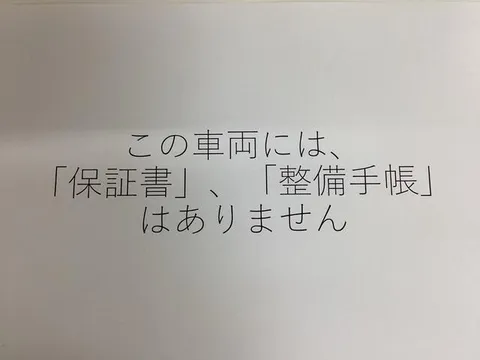 この車両には、
「保証書」、「整備手帳」
はありません